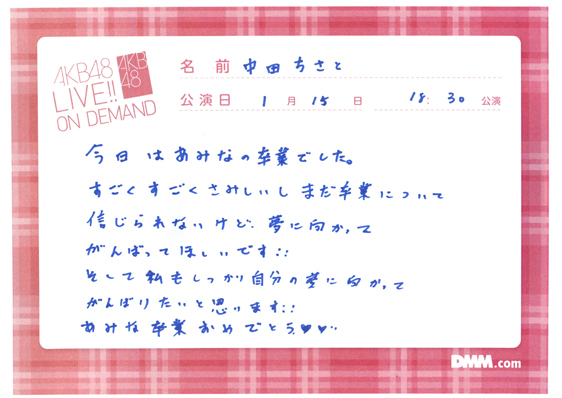 AKB48
LIVE!!
ON DEMAND
AKB
48
名前 中田ちさと
公演日 1月15日 18:30公演
今日はあみなの卒業でした。
すごくすごくさみしいし まだ卒業について
信じられないけど、夢に向かって
がんばってほしいです::
そして私もしっかり自分の夢に向かって
がんばりたいと思います::
あみな卒業おめでとう♥♥..
DMM.com